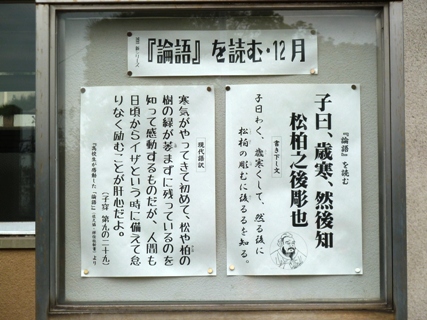 『論語』を読む・12月
『論語』を読む
子曰、歳寒、然後知
松柏之後彫也
書き下し文
子曰わく、歳寒くして、然る後に
松柏の彫むに後るるを知る。
現代語訳
寒気がやってきて初めて、松や柏の
樹の緑が萎まずに残っているのを
知って感動するものだが、人間も
日頃からイザという時に備えて怠
りなく励むことが肝心だよ。
(子罕 第九の二十九)
『高校生が感動した「論語」』
より